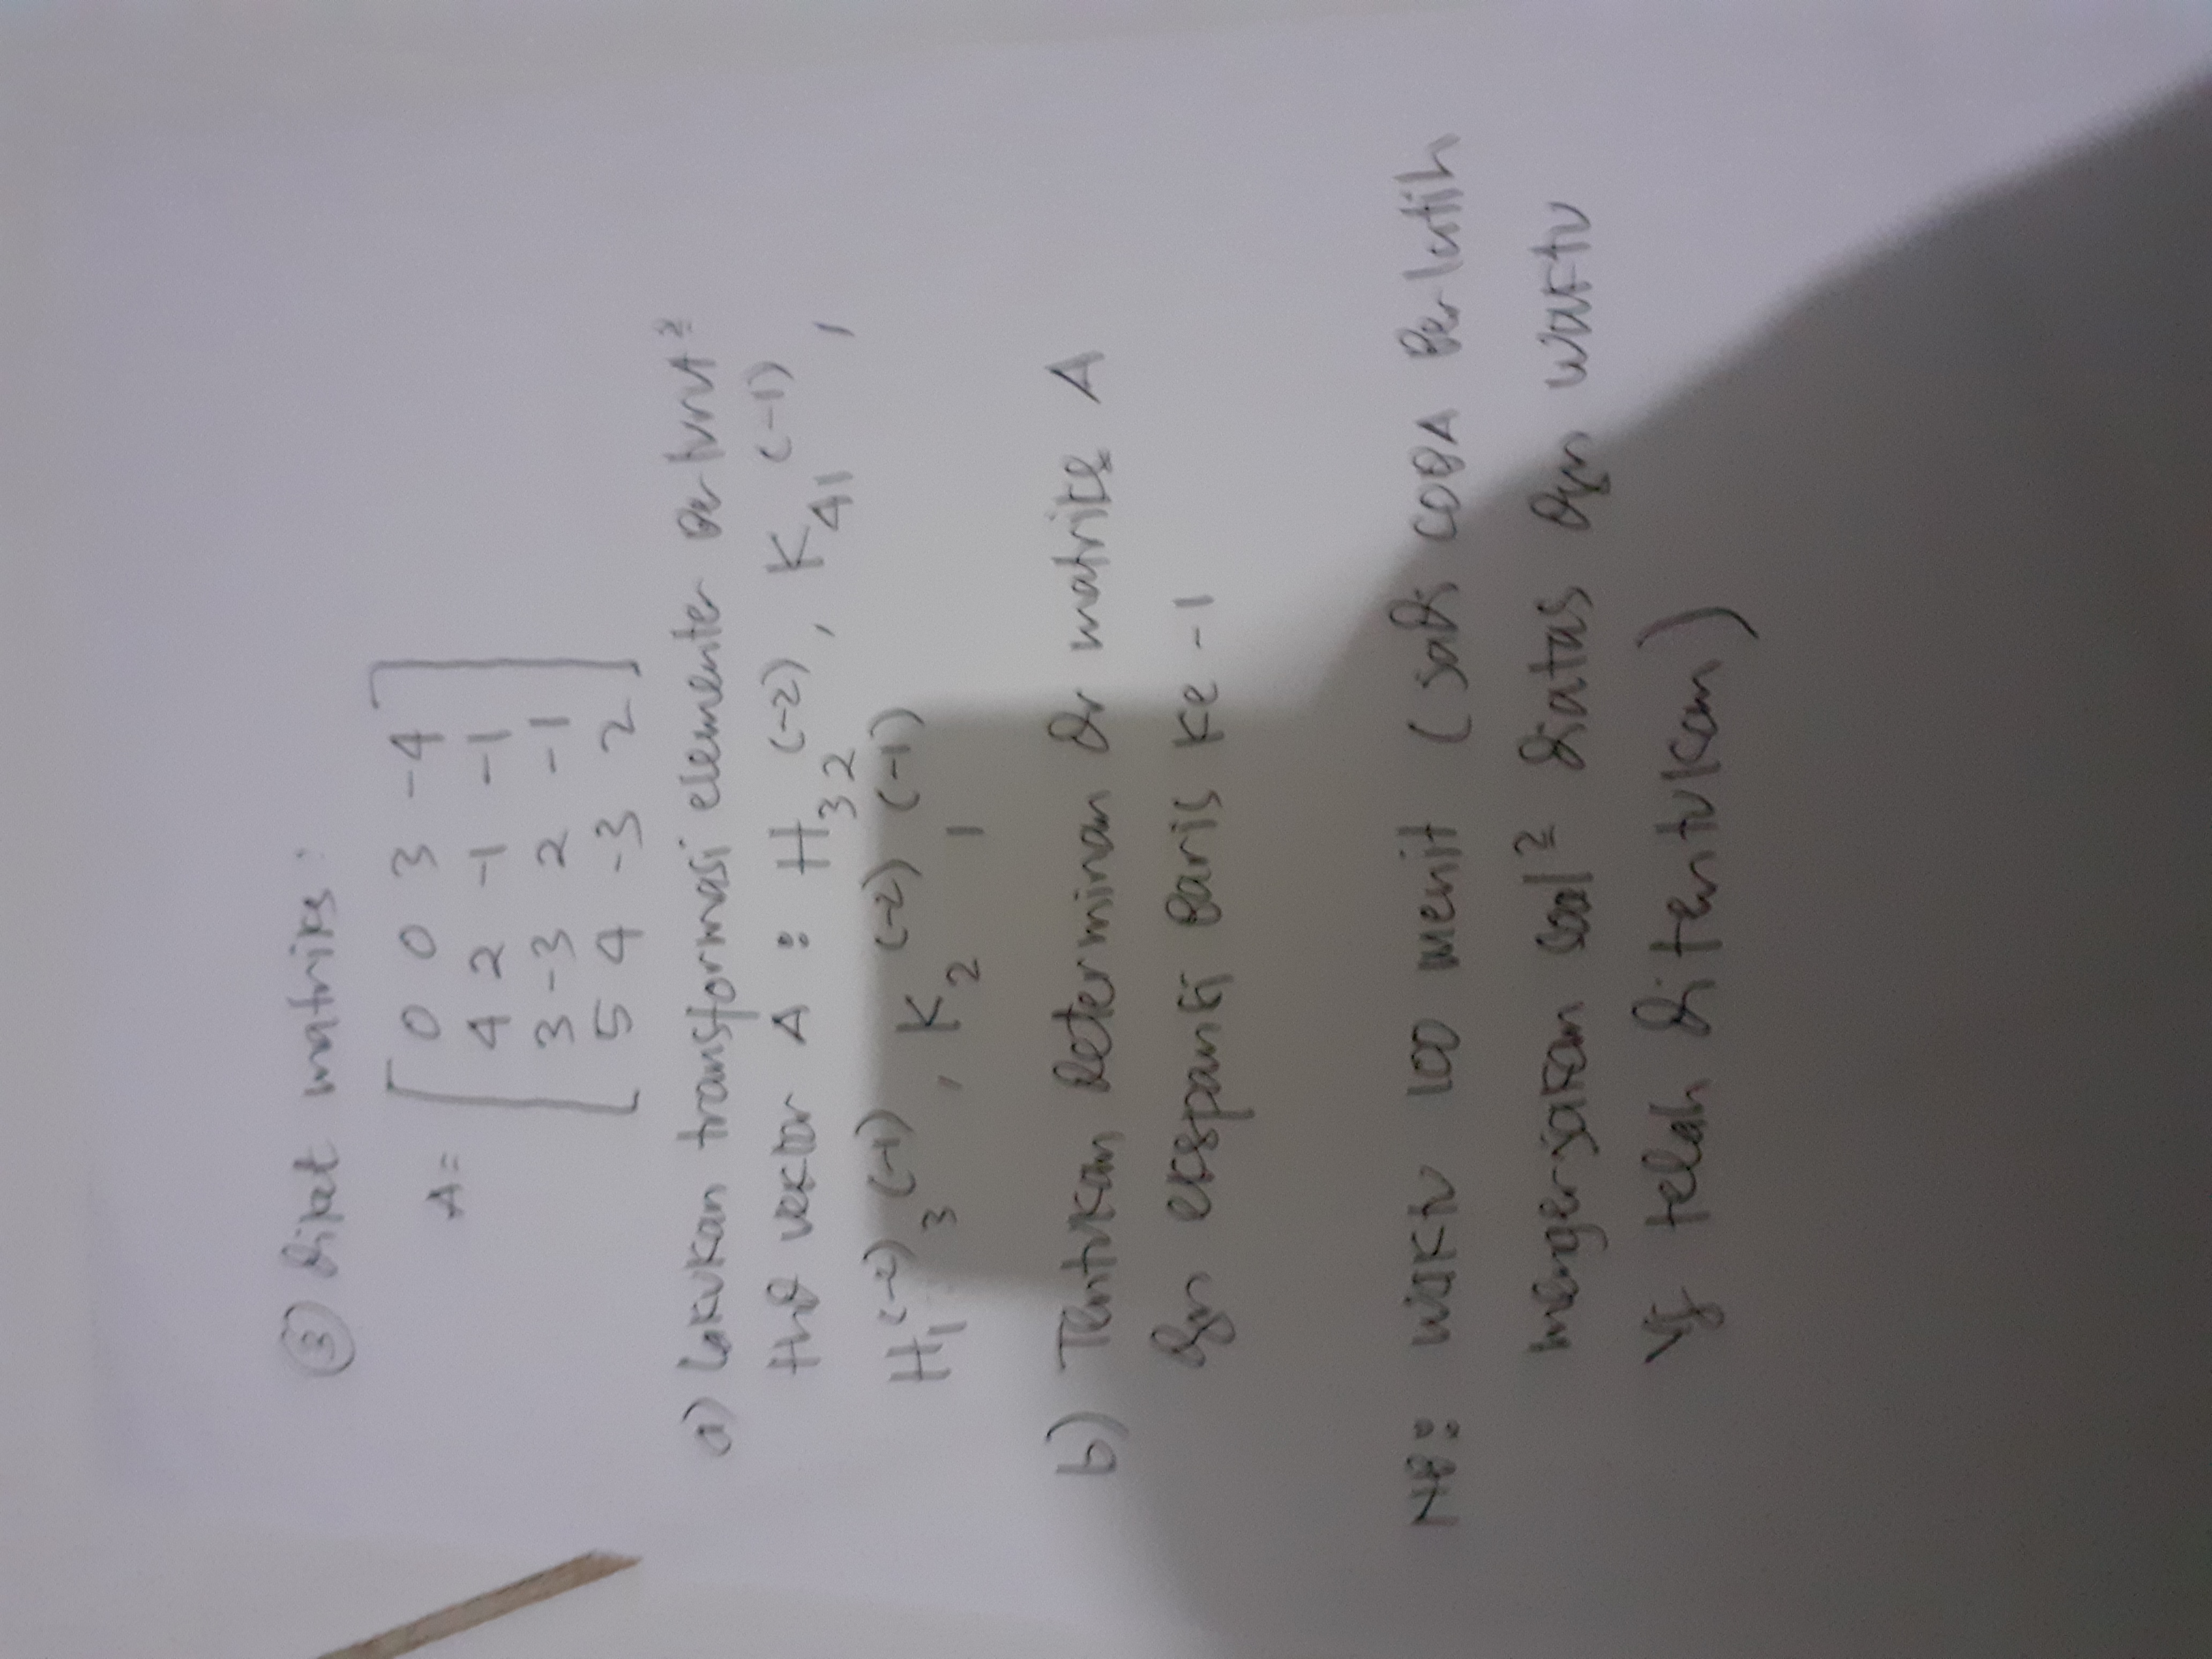 ③ diket matriks :
A = [ 0 0 3 -4
4 2 -1 -1
3 -3 2 -1
5 4 -3 2 ]
a) lakukan transformasi elementer berturut²
thd vektor A : H₃₂⁽⁻²⁾, K₄₁⁽⁻¹⁾,
H₁⁽⁻²⁾ ₃⁽⁻¹⁾, K₂⁽⁻²⁾ ₁⁽⁻¹⁾
b) Tentukan determinan dr matriks A
dgn ekspansi baris ke -1
NB: waktu 100 menit (jadi COBA berlatih
mengerjakan soal² diatas dgn waktu
yg telah ditentukan)